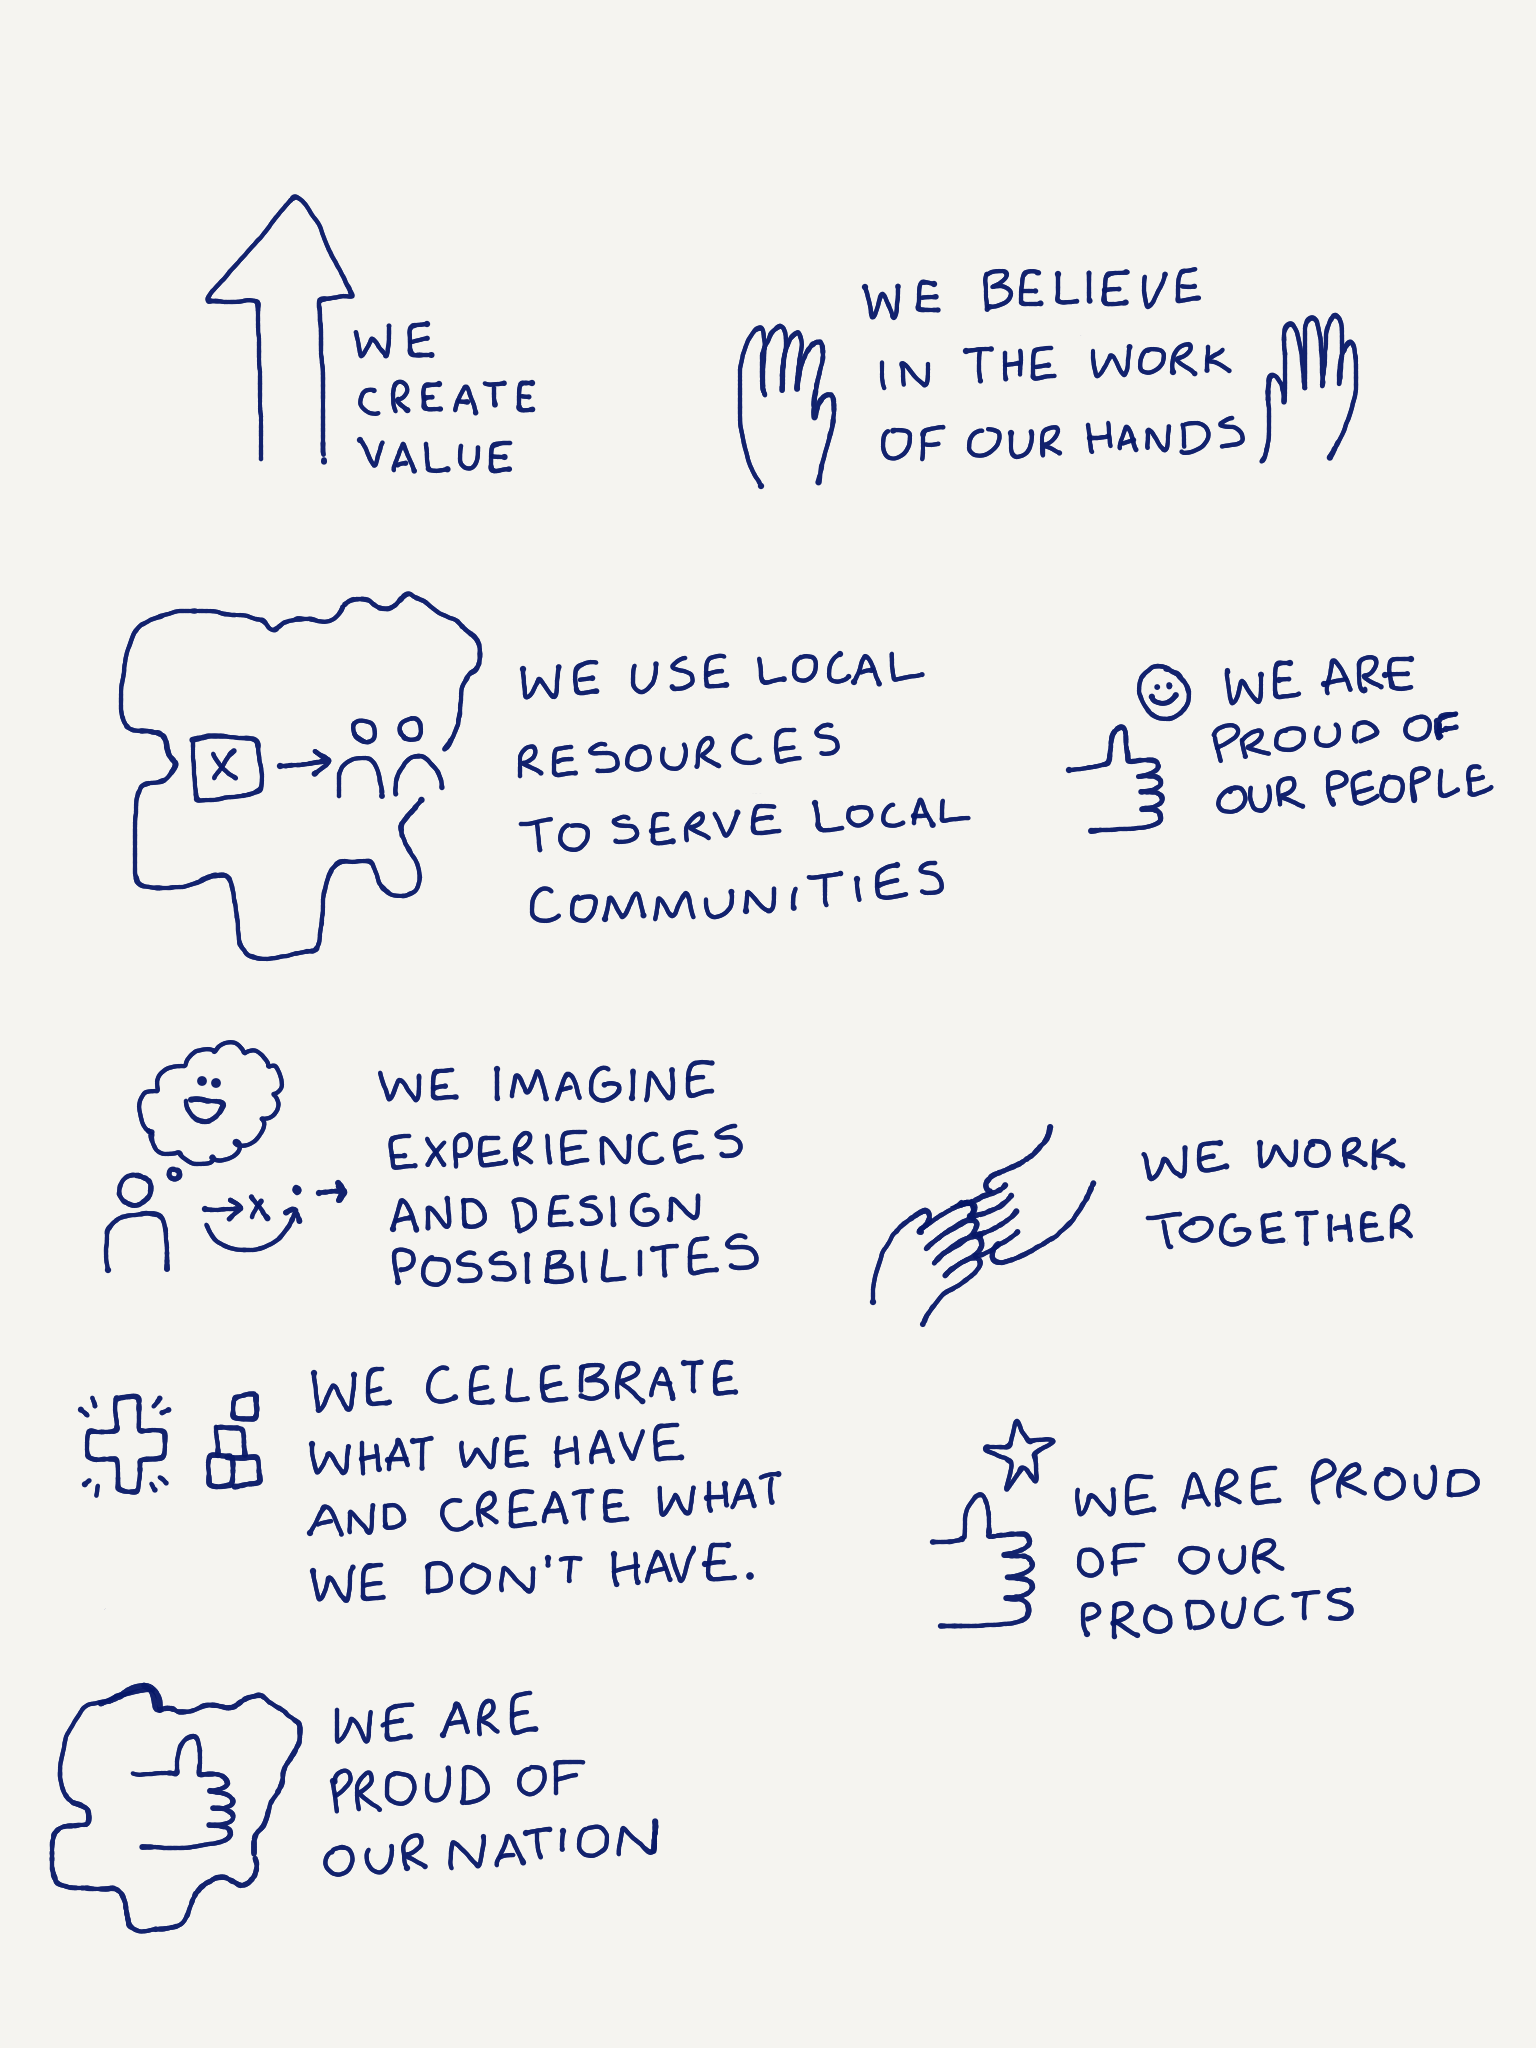 WE
CREATE
VALUE
WE BELIEVE
IN THE WORK
OF OUR HANDS
X
WE USE LOCAL
RESOURCES
TO SERVE LOCAL
COMMUNITIES
WE ARE
PROUD OF
OUR PEOPLE
X
WE IMAGINE
EXPERIENCES
AND DESIGN
POSSIBILITES
WE WORK
TOGETHER
WE CELEBRATE
WHAT WE HAVE
AND CREATE WHAT
WE DON'T HAVE.
WE ARE PROUD
OF OUR
PRODUCTS
WE ARE
PROUD OF
OUR NATION